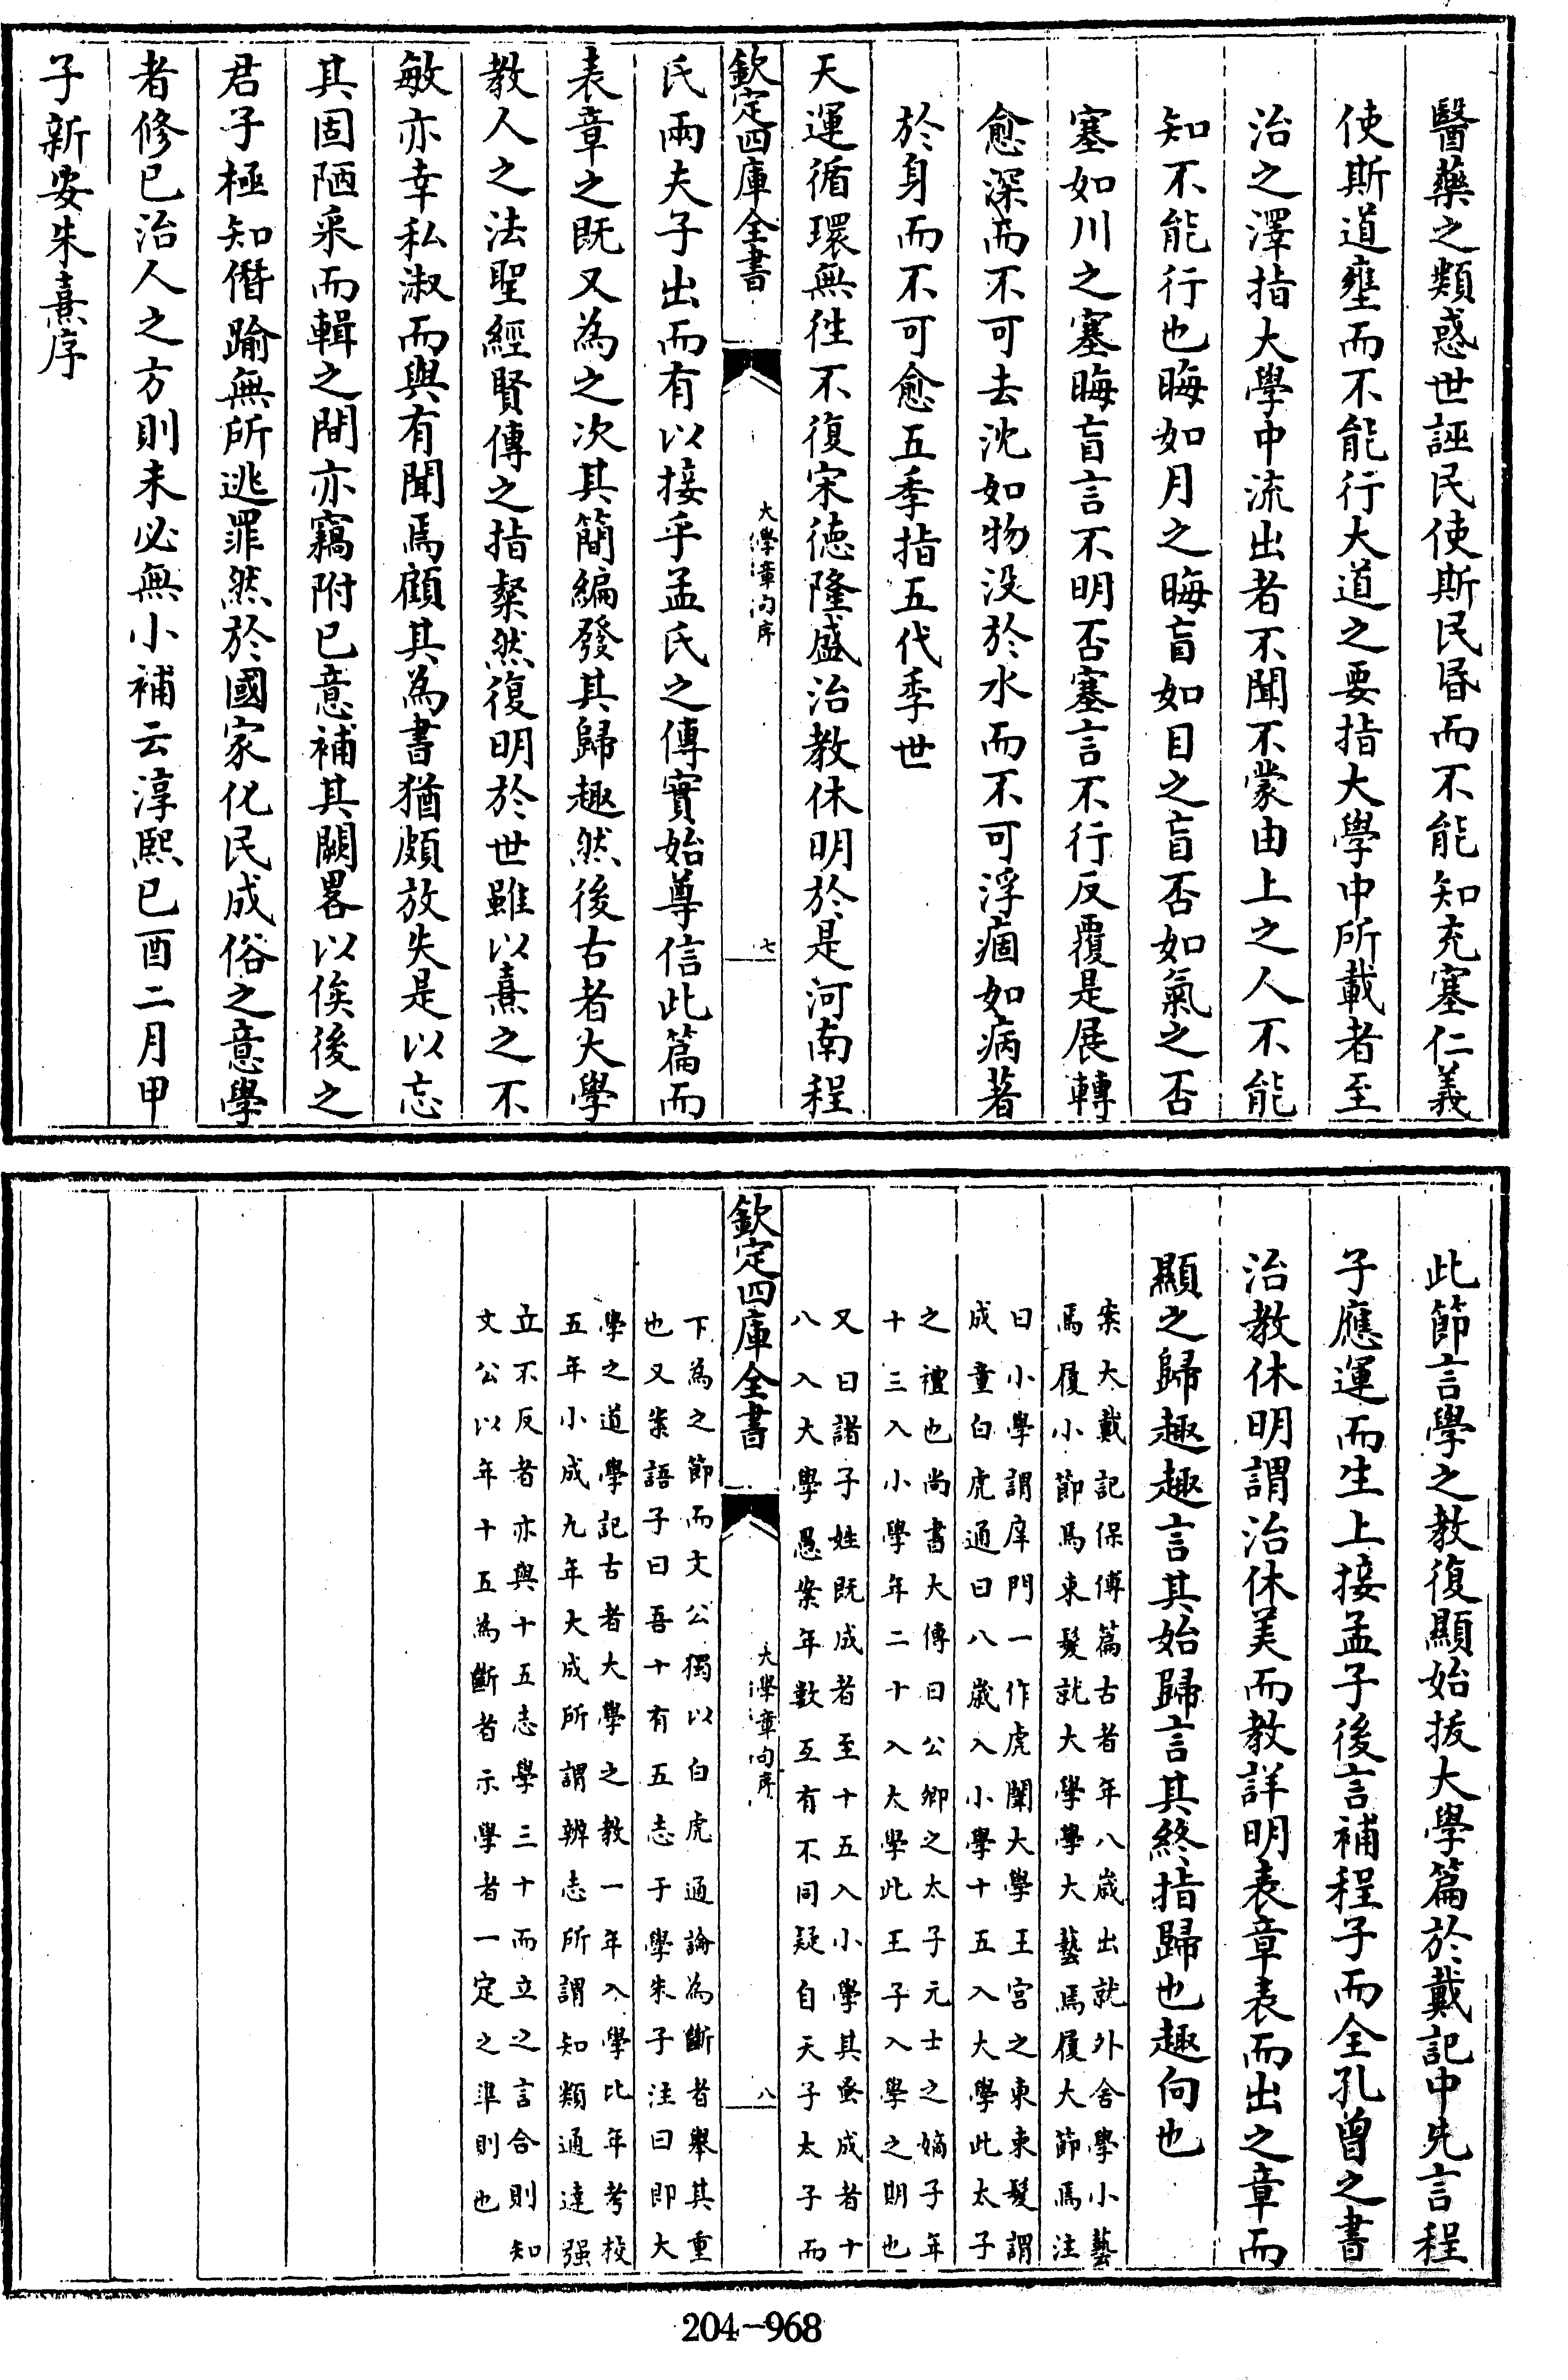 醫藥之類惑世誣民使斯民昬而不能知充塞仁義
使斯道壅而不能行大道之要指大學中所載者至
治之澤指大學中流出者不聞不蒙由上之人不能
知不能行也晦如月之晦盲如目之盲否如氣之否
塞如川之塞晦盲言不明否塞言不行反覆是展轉
愈深而不可去沈如物没於水而不可浮痼如病著
於身而不可愈五季指五代季世
天運循環無徃不復宋徳隆盛治教休明於是河南程
欽定四庫全書
大學章句序
七
氏兩夫子出而有以接乎孟氏之傳實始尊信此篇而
表章之既又為之次其簡編發其歸趣然後古者大學
教人之法聖經賢傳之指粲然復明於世雖以熹之不
敏亦幸私淑而與有聞焉顧其為書猶頗放失是以忘
其固陋采而輯之間亦竊附已意補其闕畧以俟後之
君子極知僭踰無所逃罪然於國家化民成俗之意學
者修已治人之方則未必無小補云淳熙已酉二月甲
子新安朱熹序
此節言學之教復顯始拔大學篇於戴記中先言程
子應運而生上接孟子後言補程子而全孔曾之書
治教休明謂治休美而教詳明表章表而出之章而
顯之歸趣趣言其始歸言其終指歸也趣向也
案大戴記保傅篇古者年八歲出就外舍學小藝
焉履小節焉束髮就大學學大藝焉履大節焉注
曰小學謂庠門一作虎闈大學王宮之東束髮謂
成童白虎通曰八歲入小學十五入大學此太子
之禮也尚書大傳曰公卿之太子元士之嫡子年
十三入小學年二十入大學此王子入學之期也
又曰諸子姓既成者至十五入小學其蚤成者十
八入大學愚案年數互有不同疑自天子太子而
欽定四庫全書
大學章句序
八
下為之節而文公獨以白虎通論為斷者舉其重
也又案語子曰吾十有五志于學朱子注曰即大
學之道學記古者大學之教一年入學比年考校
五年小成九年大成所謂辨志所謂知類通達强
立不反者亦與十五志學三十而立之言合則知
文公以年十五為斷者示學者一定之準則也
204-968